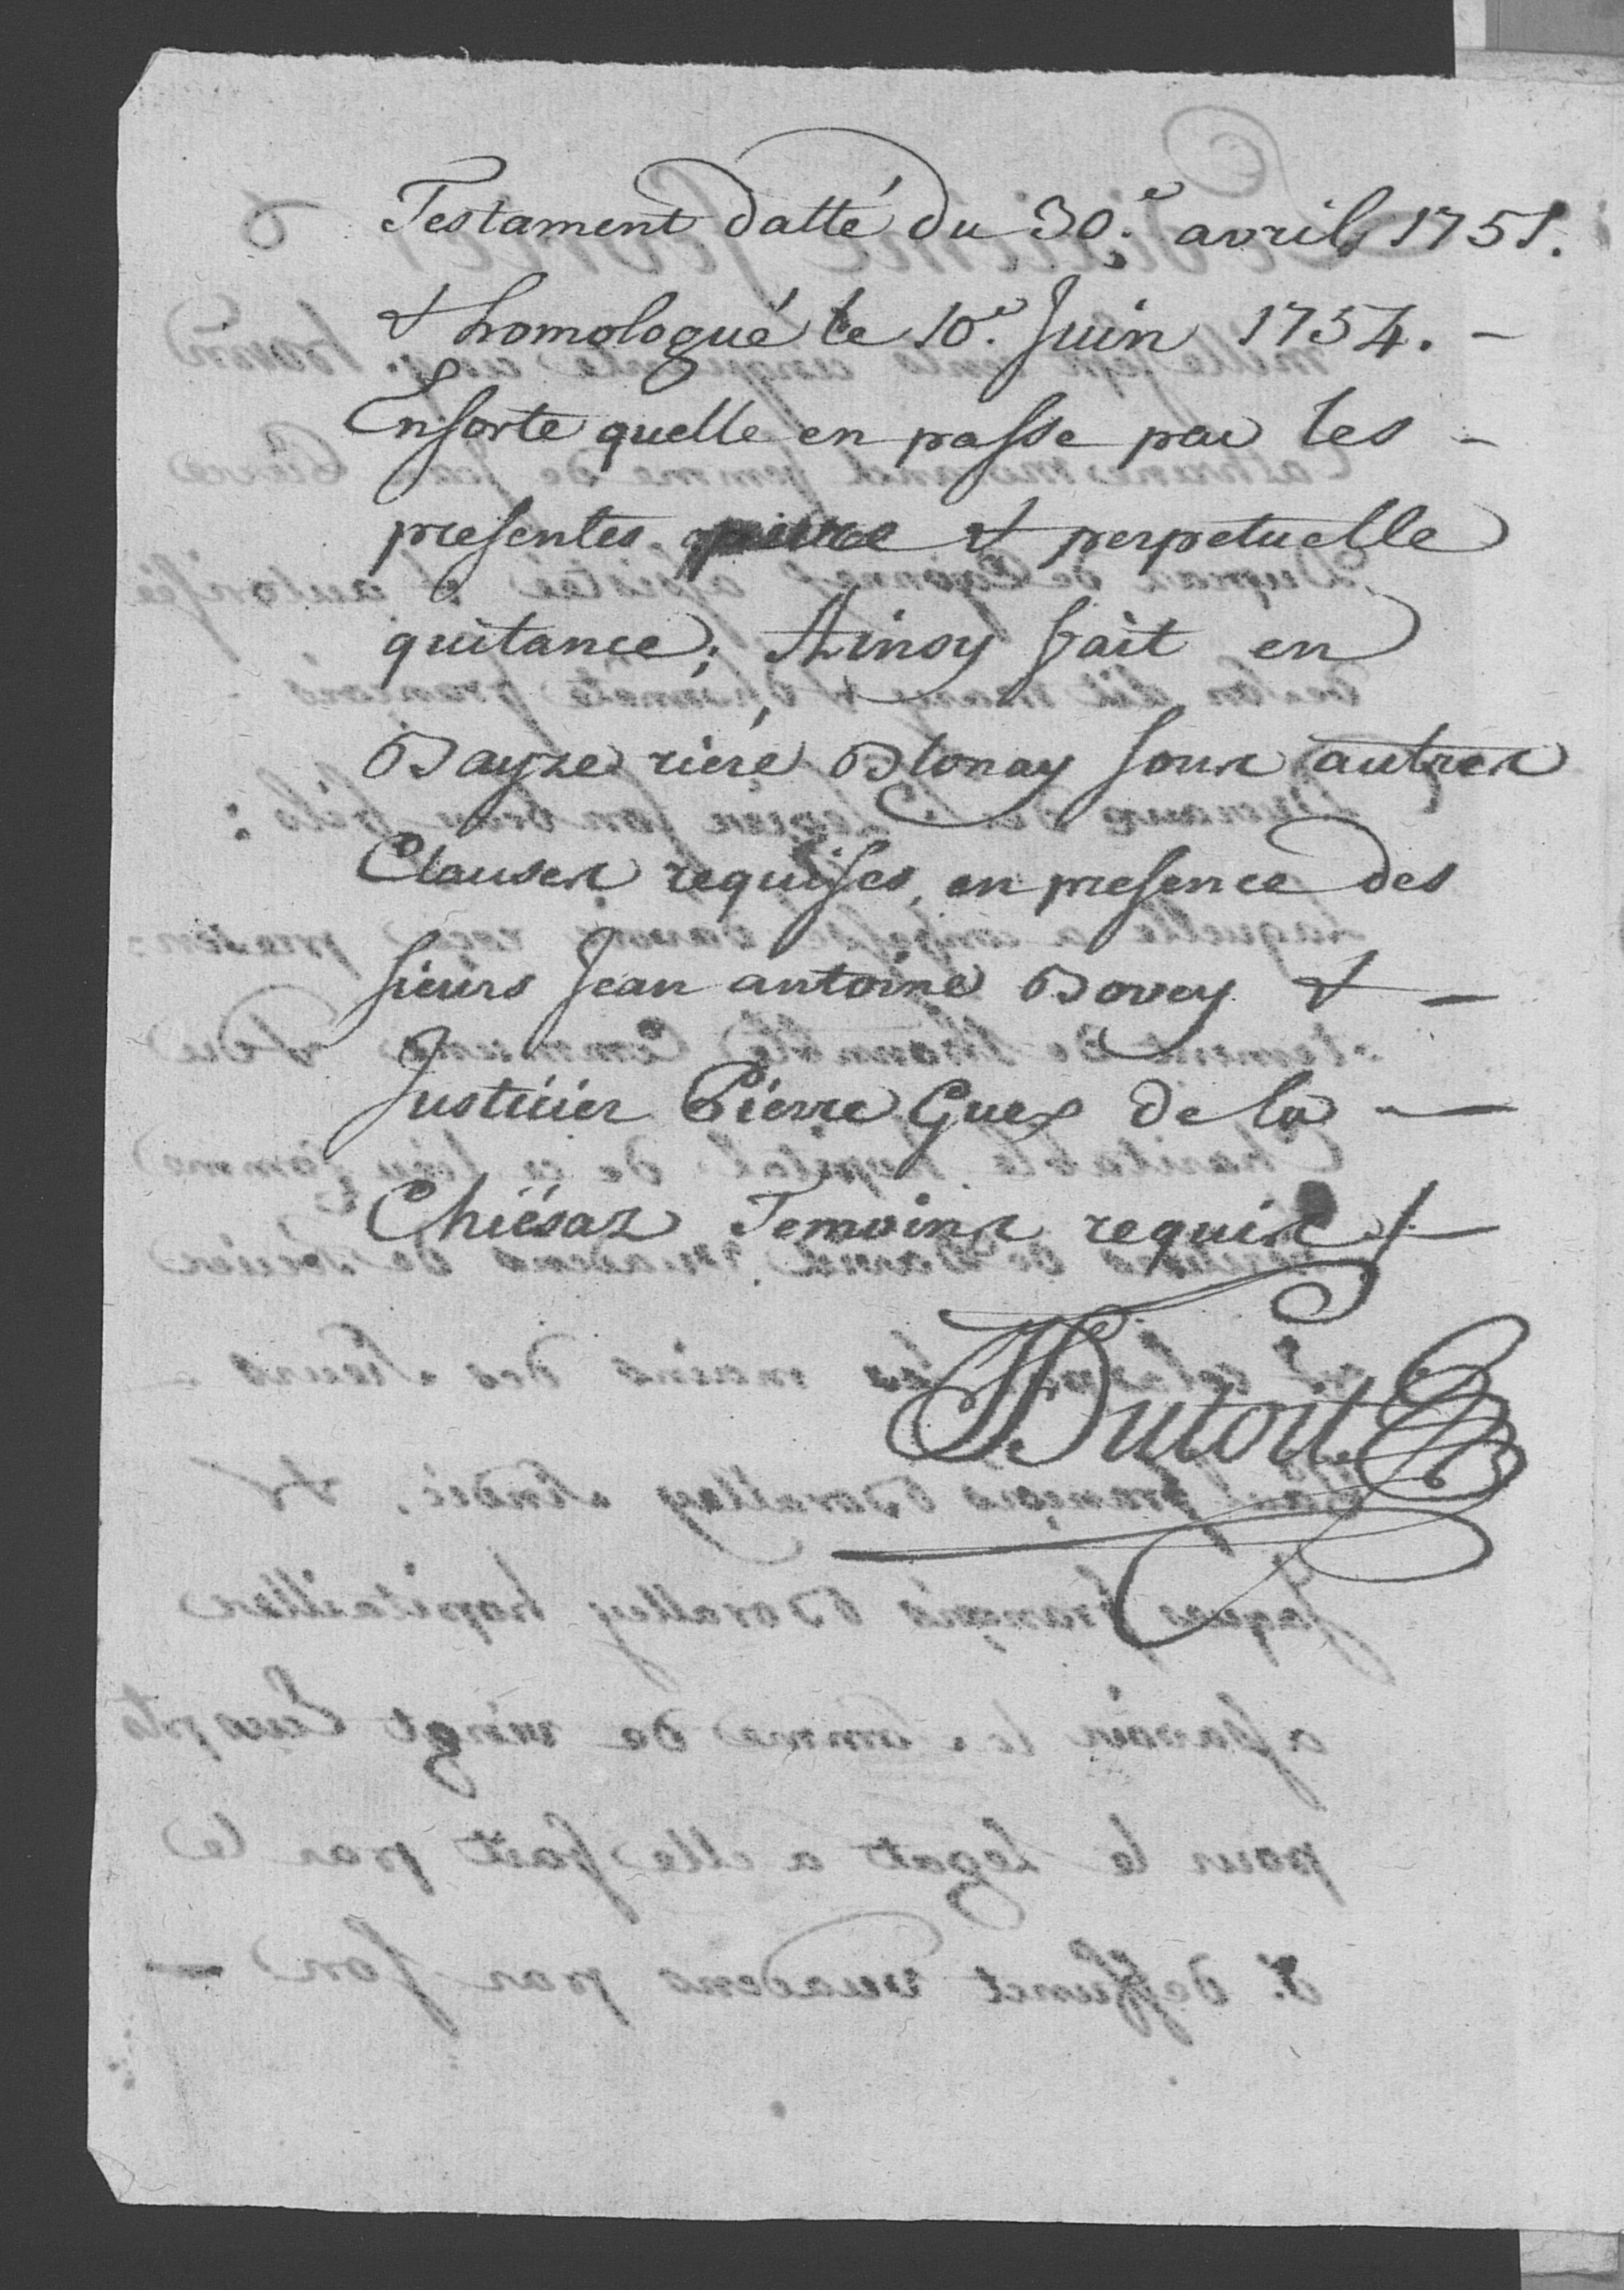 Testament datté du 30.e avril 1751.
& homologué le 10.e Juin 1754. -
Ensorte quelle en passe par les -
presentes & perpetuelle
quitance; Ainsy fait en
Bayze riére Blonay sous autres
Clauses requises, en presence des
sieurs Jean antoine Bovey & -
Justicier Pierre Guex de la -
Chiésaz Temoins requis
Dutoit